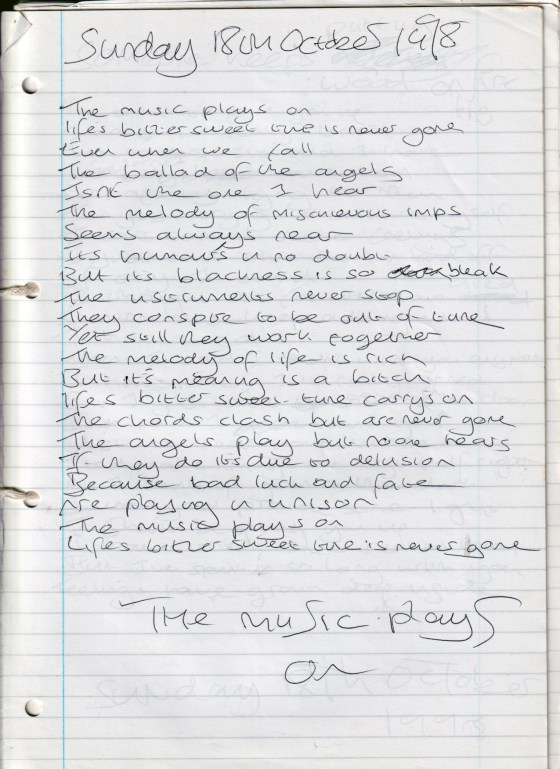 Sunday 18th October 1998
The music plays on
lifes bitter sweet tune is never gone
Even when we fall
The ballad of the angels
Isnt the one I hear
The melody of mischievous imps
Seems always near
Its humour's no doubt
But its blackness is so bleak
The instruments never stop
They conspire to be out of tune
Yet still they work together
The melody of life is rich
But it's meaning is a bitch
lifes bitter sweet tune carrys on
The chords clash but are never gone
The angels play but no one hears
If they do its due to delusion
Because bad luck and fate
Are playing in unison
The music plays on
Lifes bitter sweet tune is never gone
THe music plays
on
Sunday October
1998